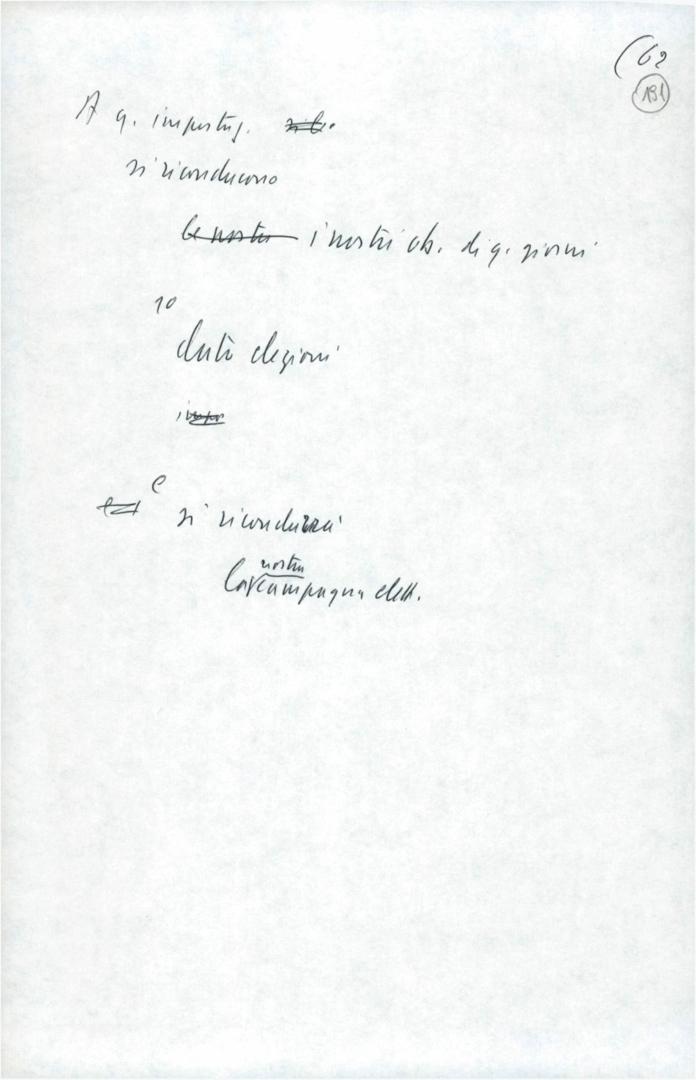 (62
191
A q. impostaz.
si riconducono
le nostre i nostri ob. di q. giorni
10
data elezioni
e
si ricondurrà
nostra
la campagna elett.